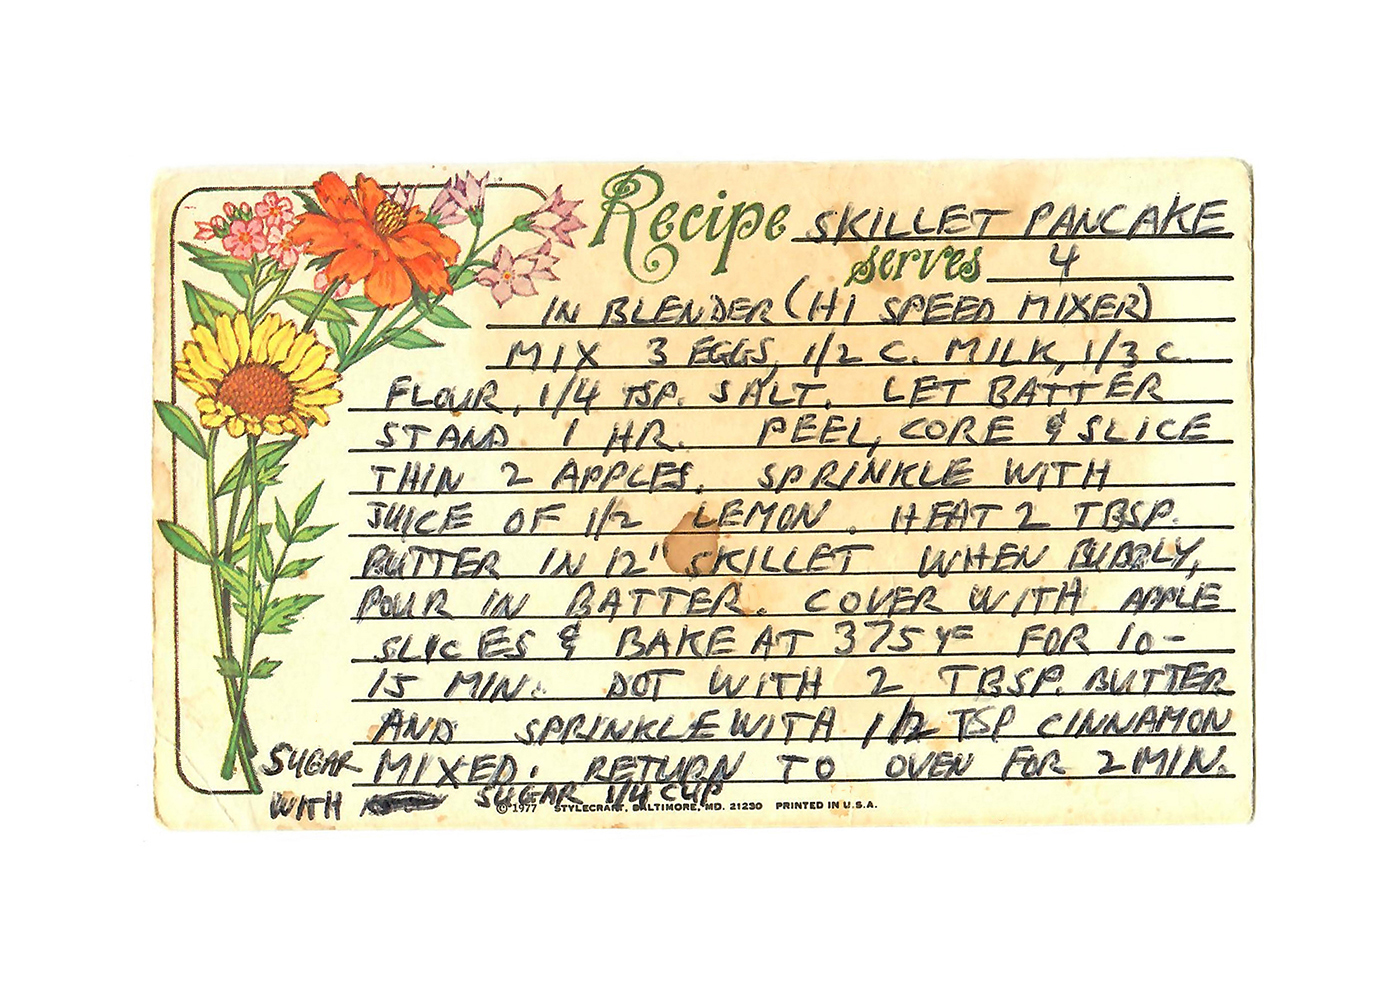 Recipe SKILLET PANCAKE
serves 4
IN BLENDER (HI SPEED MIXER)
MIX 3 EGGS, 1/2 C. MILK, 1/3 C.
FLOUR, 1/4 TSP. SALT. LET BATTER
STAND 1 HR. PEEL, CORE & SLICE
THIN 2 APPLES. SPRINKLE WITH
JUICE OF 1/2 LEMON. HEAT 2 TBSP.
BUTTER IN 12" SKILLET WHEN BUBBLY,
POUR IN BATTER. COVER WITH APPLE
SLICES & BAKE AT 375°F FOR 10-
15 MIN. DOT WITH 2 TBSP. BUTTER
AND SPRINKLE WITH 1/2 TSP CINNAMON
SUGAR MIXED. RETURN TO OVEN FOR 2 MIN.
WITH SUGAR 1/4 CUP
© 1977 STYLECRAFT, BALTIMORE, MD. 21230 PRINTED IN U.S.A.